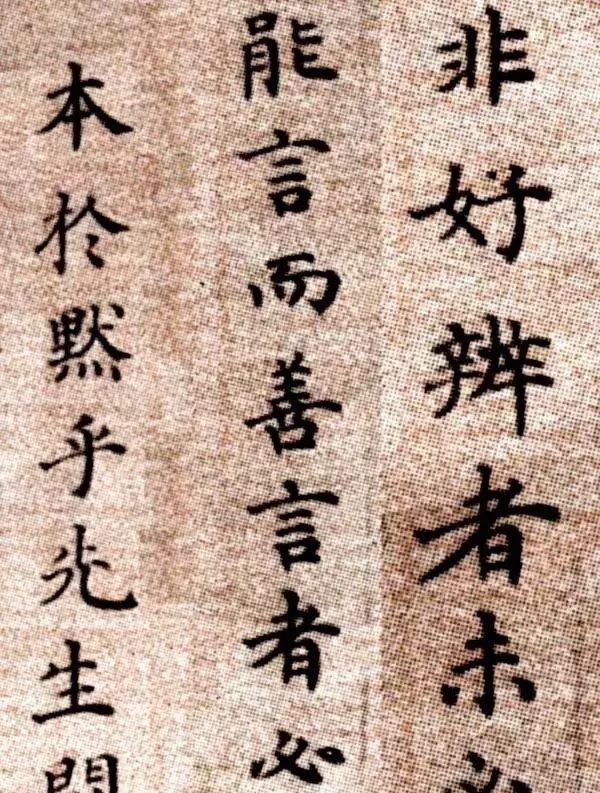 非好辨者未必
能言而善言者必
本於默乎先生